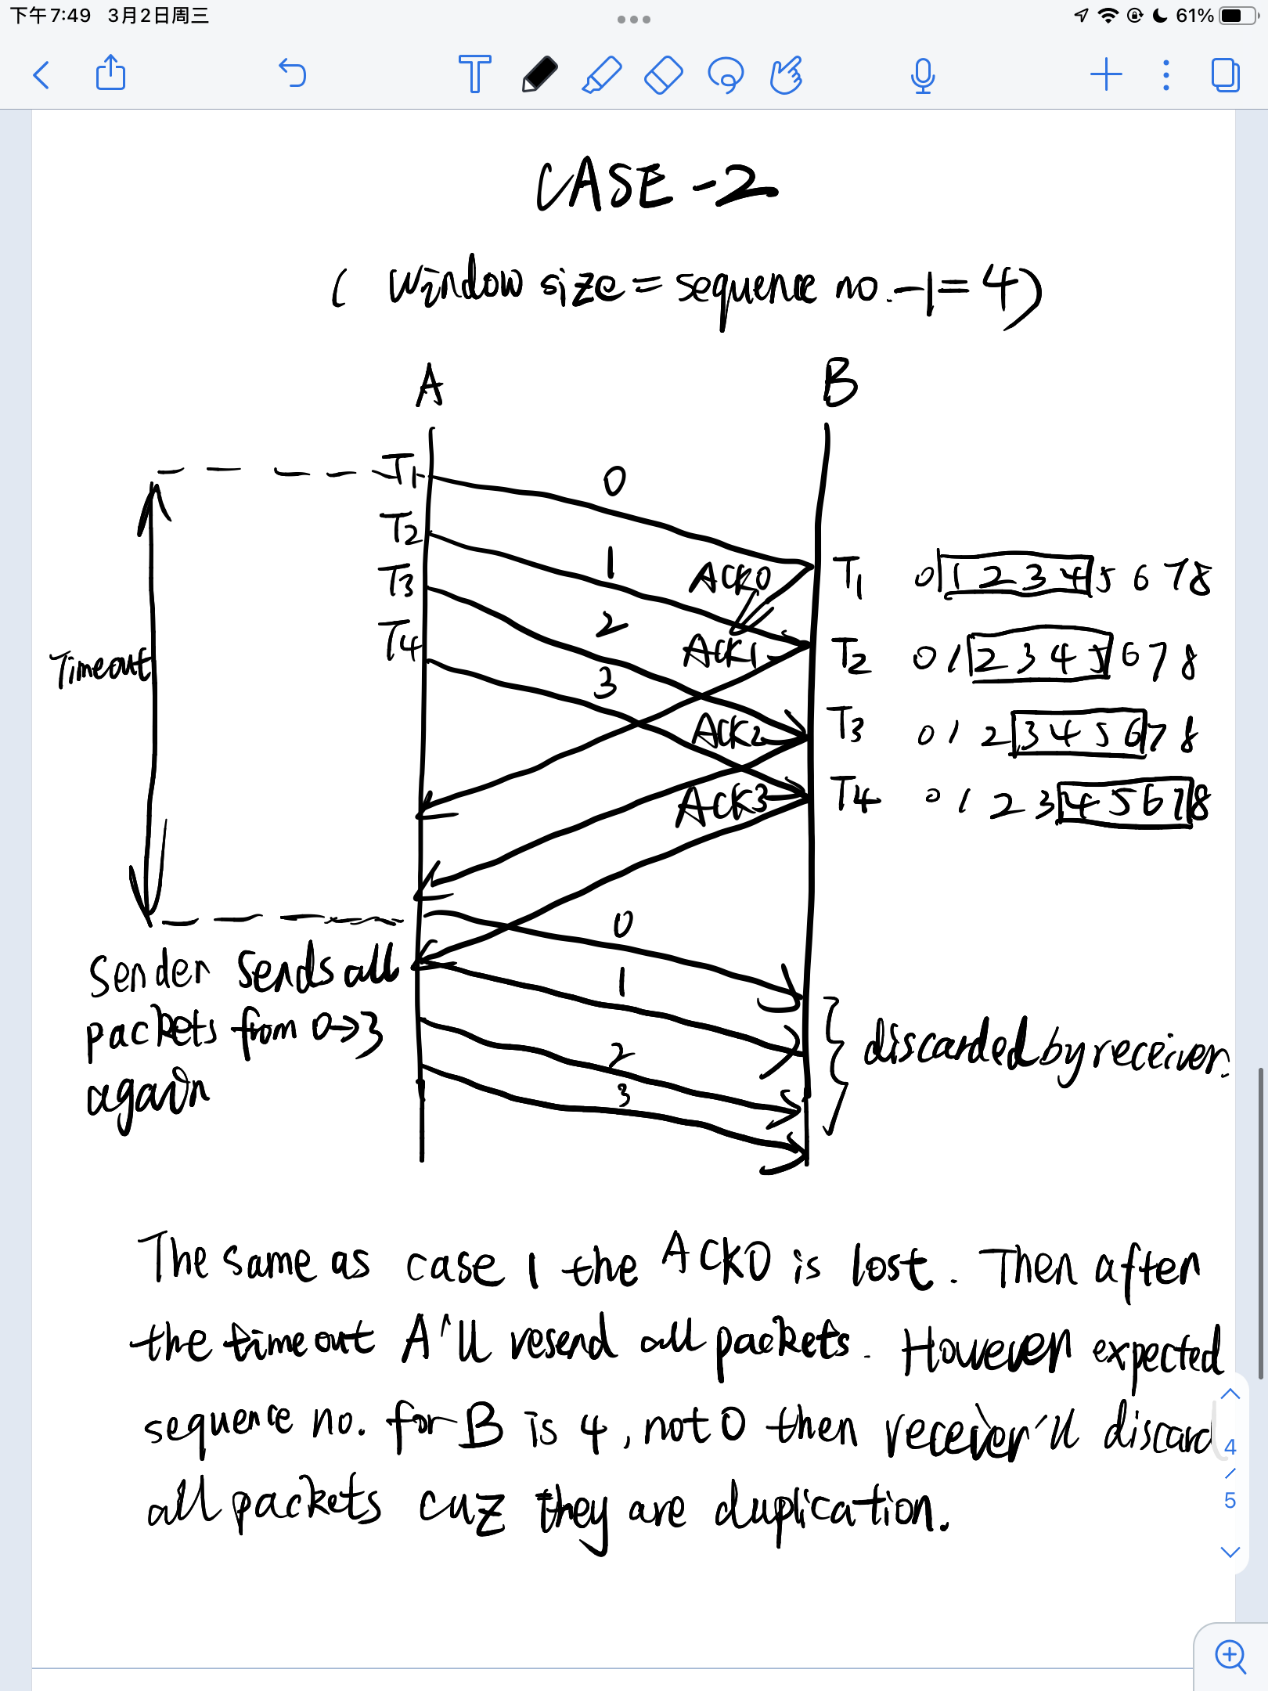 下午7:49 3月2日周三
61%
T
CASE-2
( Window size = sequence no.-1=4)
A
B
T1
0
T2
1
ACK0
T1 0 1 2 3 4 5 6 7 8
T3
2
T4
ACK1
T2 0 1 2 3 4 5 6 7 8
Timeout
3
ACK2
T3 0 1 2 3 4 5 6 7 8
ACK3
T4 0 1 2 3 4 5 6 7 8
0
Sender Sends all
1
packets from 0→3
discarded by receiver.
2
again
3
The same as case 1 the ACK0 is lost. Then after
the timeout A'll resend all packets. However expected
sequence no. for B is 4, not 0 then recever'll discard
all packets cuz they are duplication.
4
/
5